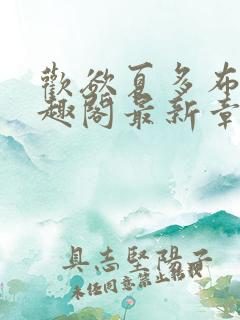 歡欲夏多布
趣閣最新章
具志堅陽子
未經同意禁止轉載